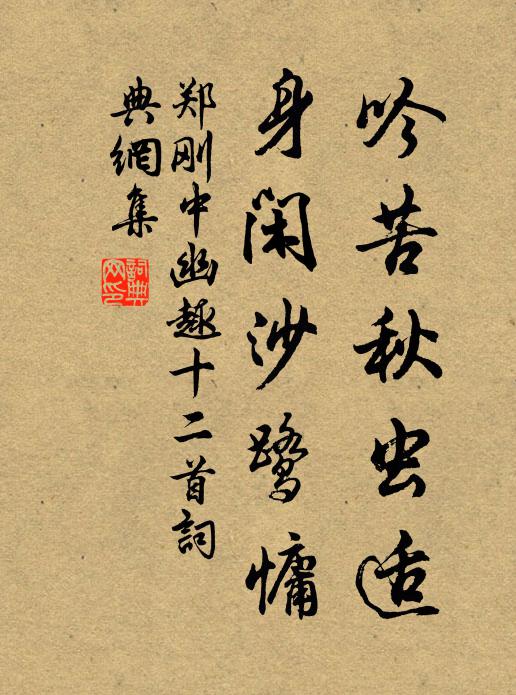 吟苦秋虫适
身闲沙鹭慵
郑刚中幽趣十二首詞
典網集
詞典网印